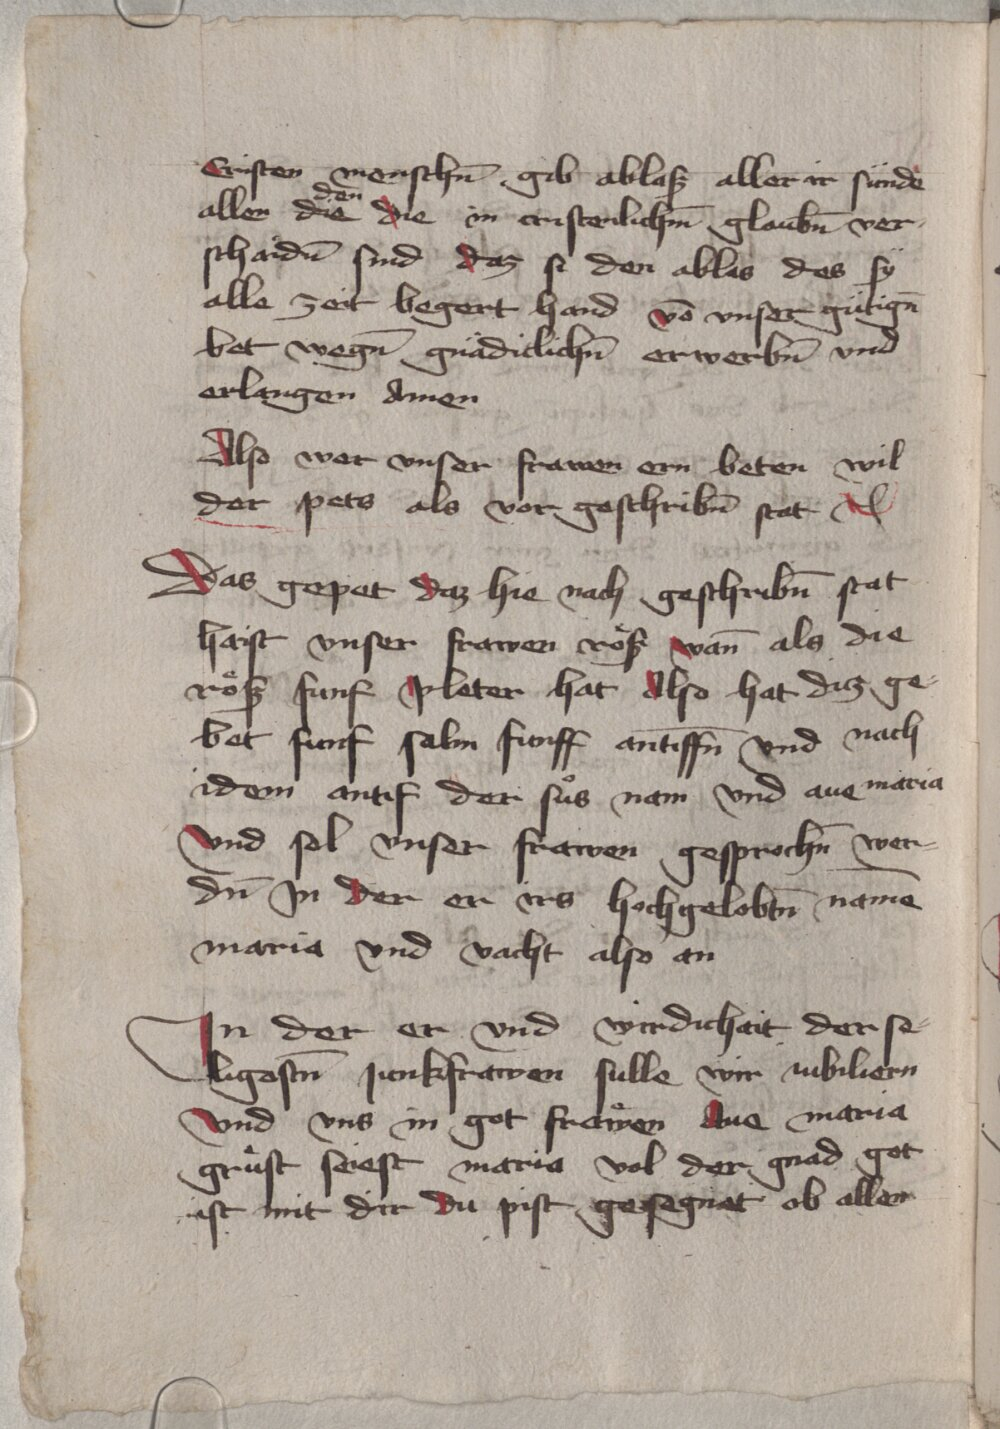 Cristen menschn̄ gib ablasz aller ir sünde
den
allen die die in cristenlichm̄ glaubn̄ ver-
schaidn̄ sind daz si den ablas des sÿ
alle zeit begert hand vō vnser gütign̄
bet wegn̄ gnädiclichn̄ erwerbn̄ vnd
erlangen Amen
Also wer vnser frawen ern beten wil
der pets als vor geschribn̄ stat
Das gepet daz hie nach geschribn̄ stat
haist vnser frawen rösz wan̄ als die
rösz funf pleter hat Also hat diz ge-
bet funf salm funff antiffn̄ vnd nach
idem antif der suͦs nam vnd aue maria
Vnd sol vnser frawen gesprochn̄ wer-
dn̄ In der er irs hochgelobtn̄ namē
maria vnd vacht also an
In der er vnd wirdichait der se-
ligestn̄ junkfrawen sulle wir iubiliern
Vnd vns in got fräwen Aue maria
grüst seiest maria vol der gnad got
ist mit dir Du pist gesegnet ob allen